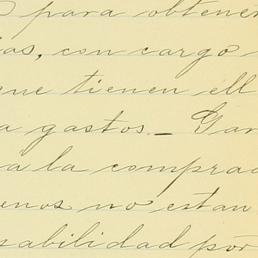 para obtener
ias, con cargo
ue tienen ell
a gastos. — Gar
a la comprad
enos no estan
sabilidad por